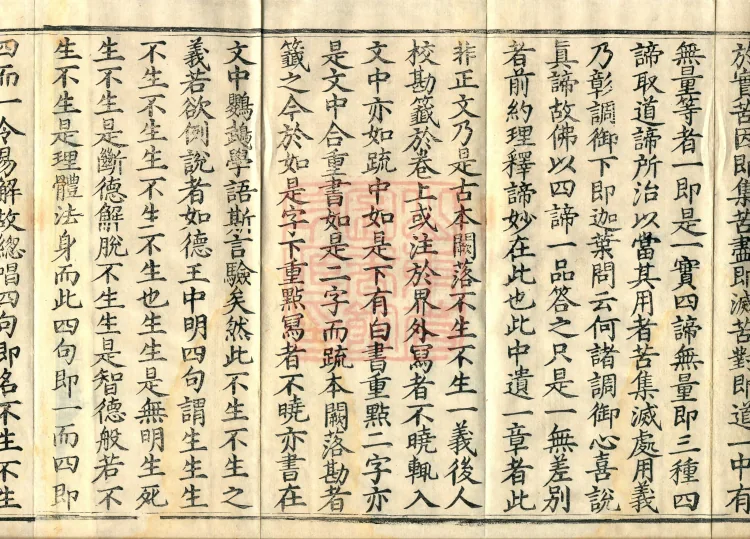 於實苦因即集苦盡即滅苦對即道一中有
無量等者一即是一實四諦無量即三種四
諦取道諦所治以當其用者苦集滅處用義
乃彰調御下即迦葉問云何諸調御心喜說
真諦故佛以四諦一品答之只是一無差別
者前約理釋諦妙在此也此中遺一章者此
非正文乃是古本闕落不生不生一義後人
校勘籤於卷上或注於界外寫者不曉輒入
文中亦如疏中如是下有白書重點二字亦
是文中合重書如是二字而疏本闕落勘者
籤之今於如是字下重點寫者不曉亦書在
文中鸚鵡學語斯言驗矣然此不生不生之
義若欲例說者如德王中明四句謂生生生
不生不生生不生不生也生生是無明生死
生不生是斷德解脫不生生是智德般若不
生不生是理體法身而此四句即一而四即
四而一令易解故總唱四句即名不生不生